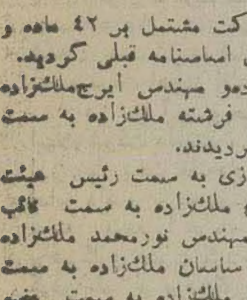 کت مشتمل بر ٤٢ ماده و
اساسنامه قبلی گردید.
دو مهندس ایرج ملک‌زاده
فرشته ملک‌زاده به سمت
ردیدند.
زی به سمت رئیس هیئت
ملک‌زاده به سمت نائب
مهندس نورمحمد ملک‌زاده
ساسان ملک‌زاده به سمت
ملک‌زاده به سمت